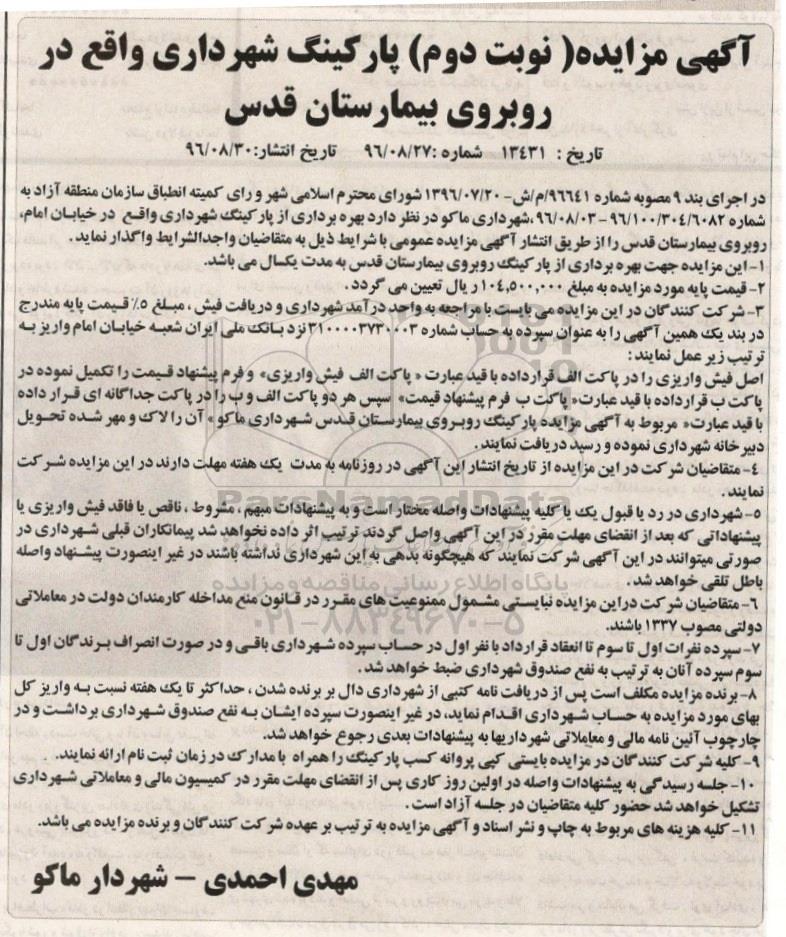 آگهی مزایده( نوبت دوم) پارکینگ شهرداری واقع در
روبروی بیمارستان قدس
تاریخ : ۱۳۴۳۱ شماره :۹۶/۰۸/۲۷ تاریخ انتشار:۹۶/۰۸/۳۰
در اجرای بند ۹ مصوبه شماره ۹۶۶۴۱/م/ش- ۱۳۹۶/۰۷/۲۰ شورای محترم اسلامی شهر و رای کمیته انطباق سازمان منطقه آزاد به
شماره ۹۶/۱۰۰/۳۰۴/۶۰۸۲ – ۹۶/۰۸/۰۳ ،شهرداری ماکو در نظر دارد بهره برداری از پارکینگ شهرداری واقع در خیابان امام،
روبروی بیمارستان قدس را از طریق انتشار آگهی مزایده عمومی با شرایط ذیل به متقاضیان واجدالشرایط واگذار نماید .
۱- این مزایده جهت بهره برداری از پارکینگ روبروی بیمارستان قدس به مدت یکسال می باشد.
۲- قیمت پایه مورد مزایده به مبلغ ۱۰۴,۵۰۰,۰۰۰ ریال تعیین می گردد .
۳- شرکت کنندگان در این مزایده می بایست با مراجعه به واحد درآمد شهرداری و دریافت فیش ، مبلغ ۵٪ قیمت پایه مندرج
در بند یک همین آگهی را به عنوان سپرده به حساب شماره ۳۱۰۰۰۰۳۷۳۰۰۰۳ نزد بانک ملی ایران شعبه خیابان امام واریز به
ترتیب زیر عمل نمایند :
اصل فیش واریزی را در پاکت الف قرارداده با قید عبارت « پاکت الف فیش واریزی» و فرم پیشنهاد قیمت را تکمیل نموده در
پاکت ب قرارداده با قید عبارت« پاکت ب فرم پیشنهاد قیمت» سپس هر دو پاکت الف و ب را در پاکت جداگانه ای قرار داده
با قید عبارت« مربوط به آگهی مزایده پارکینگ روبروی بیمارستان قدس شهرداری ماکو » آن را لاک و مهر شده تحویل
دبیرخانه شهرداری نموده و رسید دریافت نمایند .
۴- متقاضیان شرکت در این مزایده از تاریخ انتشار این آگهی در روزنامه به مدت یک هفته مهلت دارند در این مزایده شرکت
نمایند .
۵- شهرداری در رد یا قبول یک یا کلیه پیشنهادات واصله مختار است و به پیشنهادات مبهم ، مشروط ، ناقص یا فاقد فیش واریزی یا
پیشنهاداتی که بعد از انقضای مهلت مقرر در این آگهی واصل گردند ترتیب اثر داده نخواهد شد پیمانکاران قبلی شهرداری در
صورتی میتوانند در این آگهی شرکت نمایند که هیچگونه بدهی به این شهرداری نداشته باشند در غیر اینصورت پیشنهاد واصله
باطل تلقی خواهد شد .
۶- متقاضیان شرکت دراین مزایده نبایستی مشمول ممنوعیت های مقرر در قانون منع مداخله کارمندان دولت در معاملاتی
دولتی مصوب ۱۳۳۷ باشند.
۷- سپرده نفرات اول تا سوم تا انعقاد قرارداد با نفر اول در حساب سپرده شهرداری باقی و در صورت انصراف برندگان اول تا
سوم سپرده آنان به ترتیب به نفع صندوق شهرداری ضبط خواهد شد .
۸- برنده مزایده مکلف است پس از دریافت نامه کتبی از شهرداری دال بر برنده شدن ، حداکثر تا یک هفته نسبت به واریز کل
بهای مورد مزایده به حساب شهرداری اقدام نماید، در غیر اینصورت سپرده ایشان به نفع صندوق شهرداری برداشت و در
چارچوب آئین نامه مالی و معاملاتی شهرداریها به پیشنهادات بعدی رجوع خواهد شد.
۹- کلیه شرکت کنندگان در مزایده بایستی کپی پروانه کسب پارکینگ را همراه با مدارک در زمان ثبت نام ارائه نمایند.
۱۰- جلسه رسیدگی به پیشنهادات واصله در اولین روز کاری پس از انقضای مهلت مقرر در کمیسیون مالی و معاملاتی شهرداری
تشکیل خواهد شد حضور کلیه متقاضیان در جلسه آزاد است .
۱۱- کلیه هزینه های مربوط به چاپ و نشر اسناد و آگهی مزایده به ترتیب بر عهده شرکت کنندگان و برنده مزایده می باشد.
مهدی احمدی – شهردار ماکو
ParsNamadData
پایگاه اطلاع رسانی مناقصه و مزایده
۰۲۱-۸۸۳۴۹۶۷۰-۵